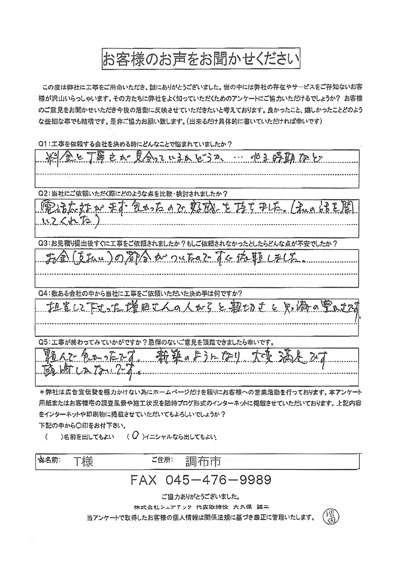 お客様のお声をお聞かせください
この度は弊社に工事をご用命いただき、誠にありがとうございました。世の中には弊社の存在やサービスをご存知ないお客
様が沢山いらっしゃいます。その方たちに弊社をよく知っていただくためのアンケートにご協力いただけるでしょうか？ お客様
のご意見をお聞かせいただき今後の活動に反映させていただきたいと考えております。良かったこと、嬉しかったことどのよう
な些細な事でも結構です。是非ご協力お願い致します。（出来るだけ具体的に書いていただければ幸いです）
Q1:工事を依頼する会社を決める時にどんなことで悩まれていましたか？
料金と丁寧さが見合っているかどうか … やる時期など
Q2:当社にご依頼いただく際にどのような点を比較・検討されましたか？
電話応対がまず良かったので好感を持てました。（私の話を聞
いてくれた）
Q3:お見積り提出後すぐに工事をご依頼されましたか？もしご依頼されなかったとしたらどんな点が不安でしたか？
お金（支払い）の都合がついたのですぐ依頼しました。
Q4:数ある会社の中から当社に工事をご依頼いただいた決め手は何ですか？
担当して下さった増田さんの人がらと親切さと知識の豊かさです
Q5:工事が終わってみていかがですか？忌憚のないご意見を頂戴できましたら幸いです。
頼んで良かったです。 新築のようになり 大変満足です
感謝しかないです。
＊弊社は広告宣伝費を極力かけない為にホームページだけを頼りにお客様への営業活動を行っております。本アンケート
用紙またはお客様宅の調査風景や施工状況を随時ブログ形式のインターネットに掲載させていただいております。上記内容
をインターネットや印刷物に掲載させていただいてもよろしいでしょうか？
下記の中から〇印をお付下さい。
（　）名前を出してもよい （〇）イニシャルなら出してもよい。
お名前: T様 ご住所: 調布市
FAX 045-476-9989
ご協力ありがとうございました。
株式会社シェアテック 代表取締役
当アンケートで取得したお客様の個人情報は関係法規に基づき厳正に管理いたします。